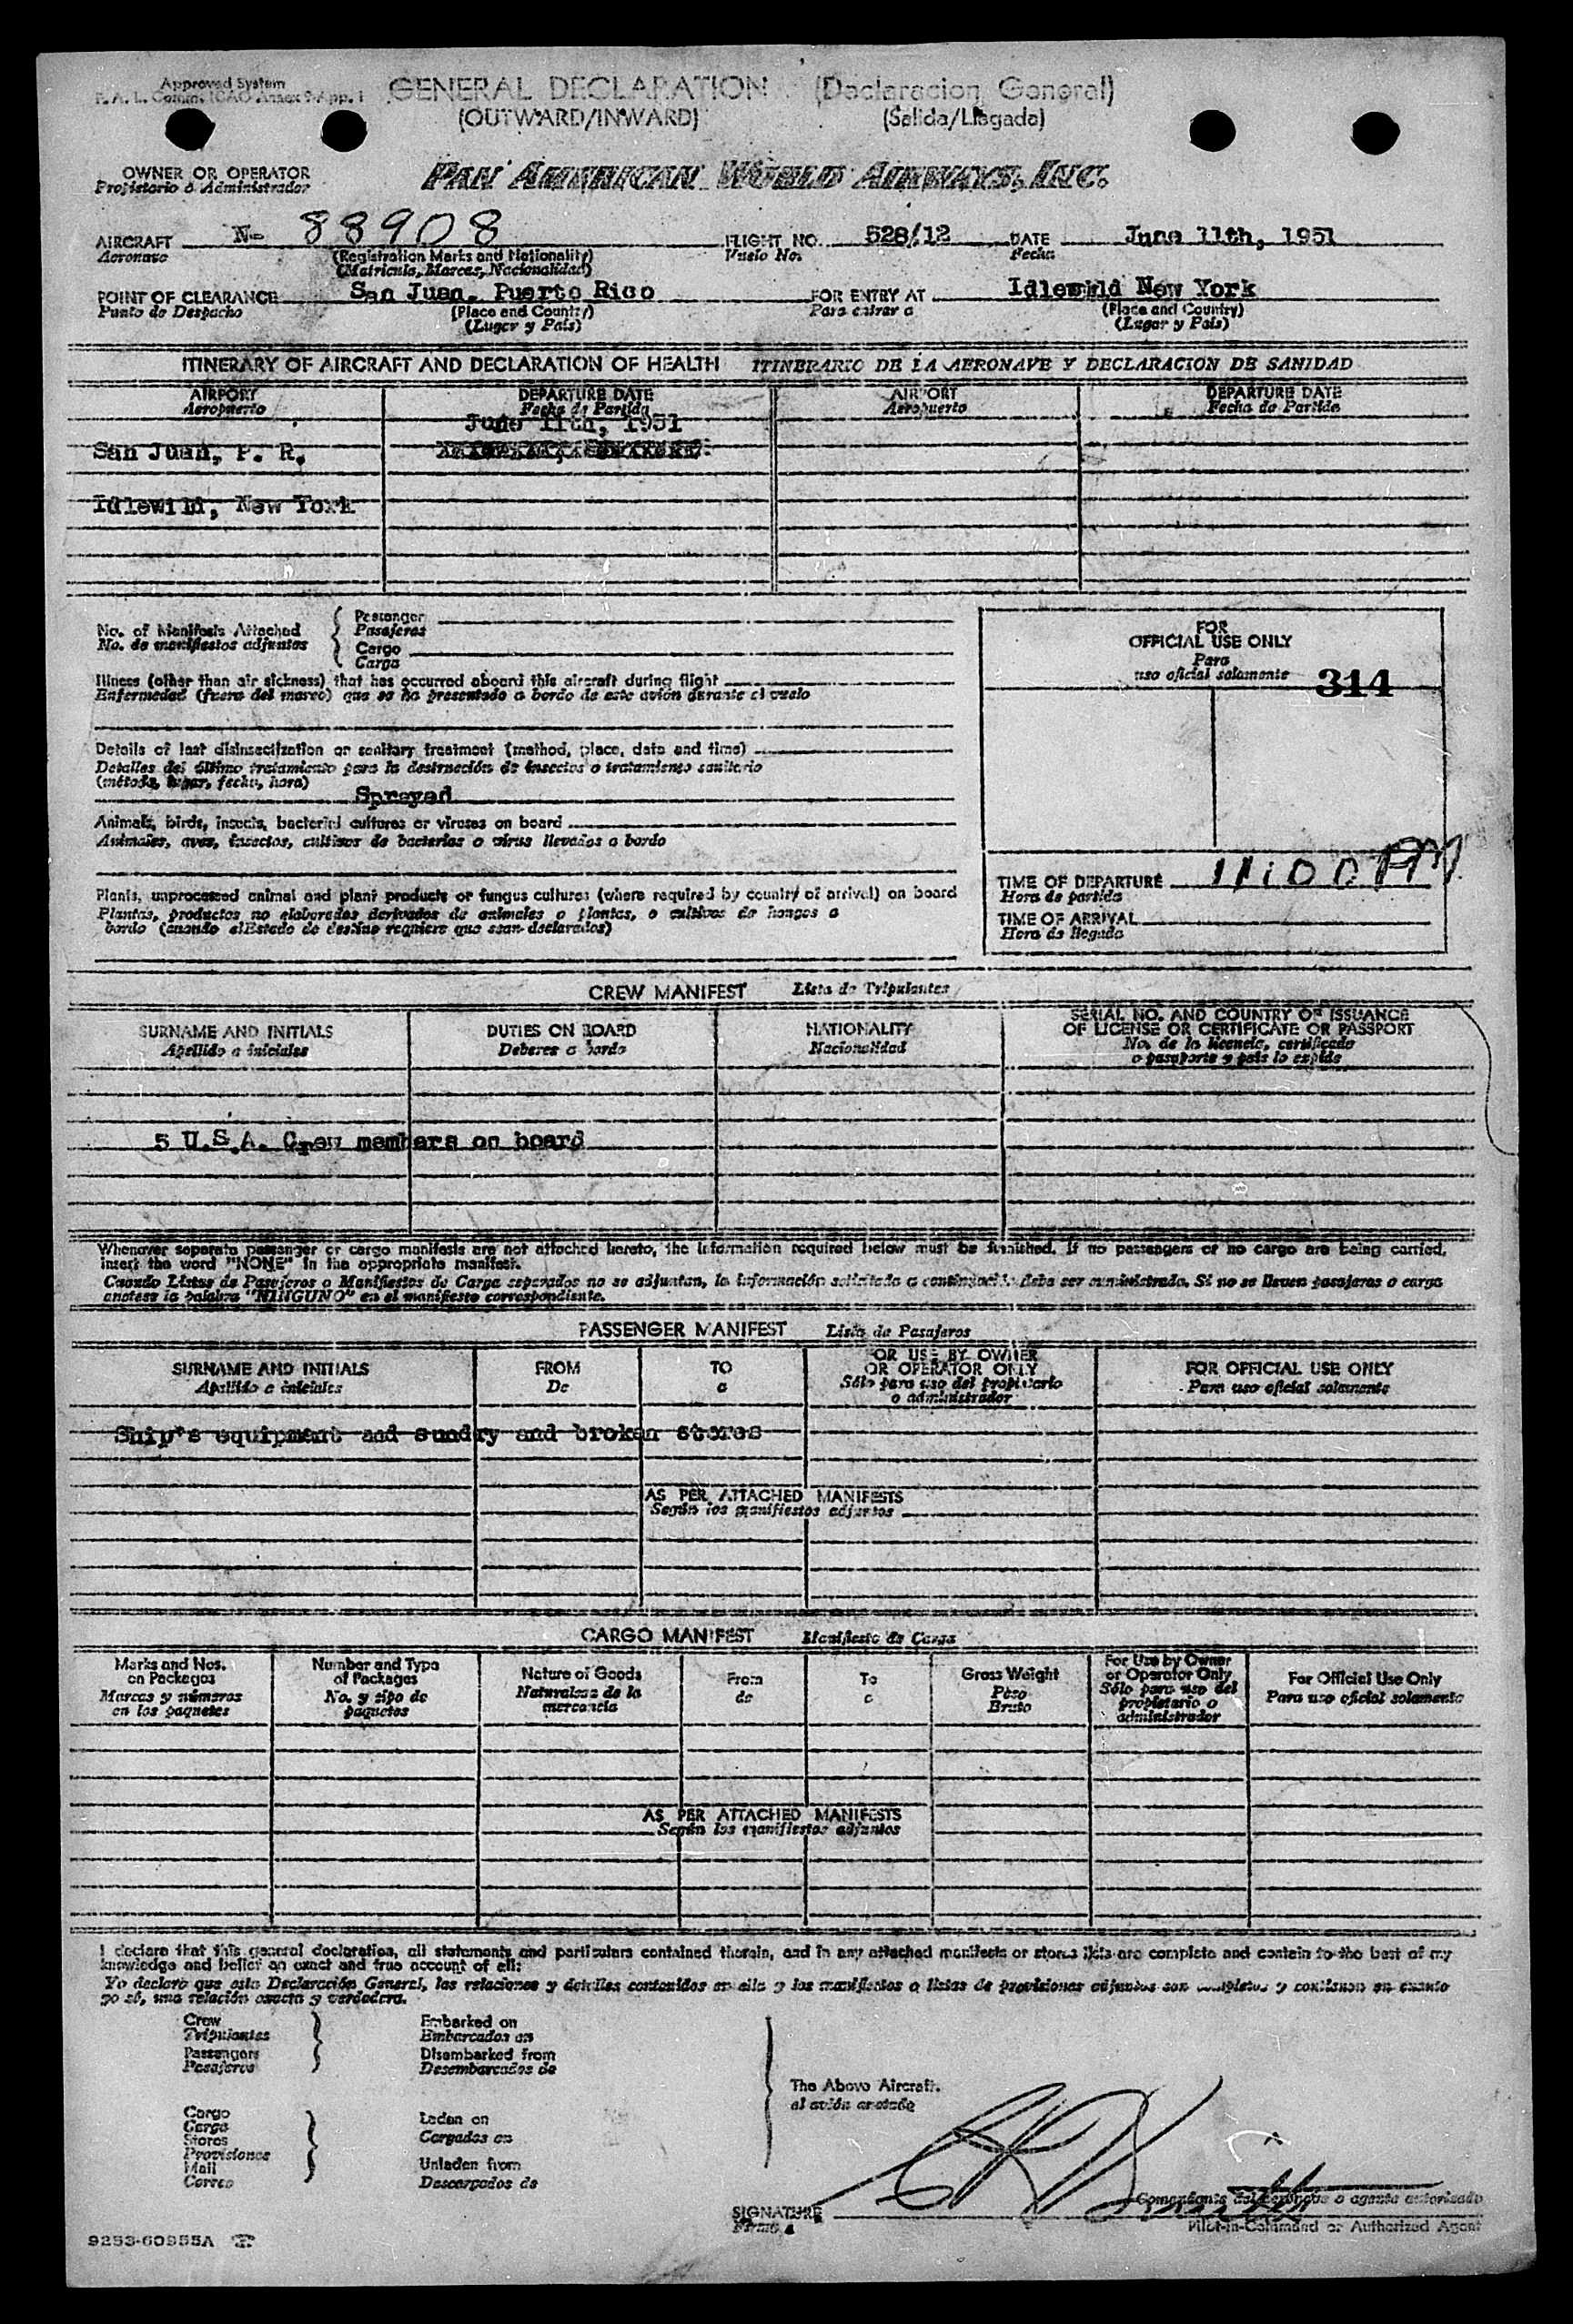 Approved System
F. A. L. Comm. ICAO Annex 9-App. 1
GENERAL DECLARATION (Declaracion General)
(OUTWARD/INWARD) (Salida/Llegada)
OWNER OR OPERATOR
Propietario o Administrador
PAN AMERICAN WORLD AIRWAYS, INC.
AIRCRAFT N- 88908 FLIGHT NO. 528/12 DATE June 11th, 1951
Aeronave (Registration Marks and Nationality) Vuelo No. Fecha
(Matricula, Marcas, Nacionalidad)
POINT OF CLEARANCE San Juan, Puerto Rico FOR ENTRY AT Idlewild New York
Punto de Despacho (Place and Country) Para entrar a (Place and Country)
(Lugar y Pais) (Lugar y Pais)
ITINERARY OF AIRCRAFT AND DECLARATION OF HEALTH ITINERARIO DE LA AERONAVE Y DECLARACION DE SANIDAD
AIRPORT DEPARTURE DATE AIRPORT DEPARTURE DATE
Aeropuerto Fecha de Partida Aeropuerto Fecha de Partida
June 11th, 1951
San Juan, P. R.
Idlewild, New York
No. of Manifests Attached
No. de manifiestos adjuntos
Passenger
Pasajeros
Cargo
Carga
Illness (other than air sickness) that has occurred aboard this aircraft during flight
Enfermedad (fuera del mareo) que se ha presentado a bordo de este avión durante el vuelo
Details of last disinsectization or sanitary treatment (method, place, date and time)
Detalles del último tratamiento para la destrucción de insectos o tratamiento sanitario
(método, lugar, fecha, hora)
Sprayed
Animals, birds, insects, bacterial cultures or viruses on board
Animales, aves, insectos, cultivos de bacterias o virus llevados a bordo
Plants, unprocessed animal and plant products or fungus cultures (where required by country of arrival) on board
Plantas, productos no elaborados derivados de animales o plantas, o cultivos de hongos a
bordo (cuando el Estado de destino requiere que sean declarados)
FOR
OFFICIAL USE ONLY
Para
uso oficial solamente
314
TIME OF DEPARTURE 11:00 PM
Hora de partida
TIME OF ARRIVAL
Hora de llegada
CREW MANIFEST Lista de Tripulantes
SURNAME AND INITIALS DUTIES ON BOARD NATIONALITY SERIAL NO. AND COUNTRY OF ISSUANCE
OF LICENSE OR CERTIFICATE OR PASSPORT
Apellido e iniciales Deberes a bordo Nacionalidad No. de la licencia, certificado
o pasaporte y pais lo expide
5 U.S.A. Crew members on board
Whenever separate passenger or cargo manifests are not attached hereto, the information required below must be furnished. If no passengers or no cargo are being carried,
insert the word "NONE" in the appropriate manifest.
Cuando Listas de Pasajeros o Manifiestos de Carga separados no se adjuntan, la información solicitada a continuación debe ser suministrada. Si no se llevan pasajeros o carga
anotese la palabra "NINGUNO" en el manifiesto correspondiente.
PASSENGER MANIFEST Lista de Pasajeros
SURNAME AND INITIALS FROM TO FOR USE BY OWNER
OR OPERATOR ONLY FOR OFFICIAL USE ONLY
Apellido e iniciales De a Sólo para uso del propietario
o administrador Para uso oficial solamente
Ship's equipment and sundry and broken stores
AS PER ATTACHED MANIFESTS
Según los manifiestos adjuntos
CARGO MANIFEST Manifiesto de Carga
Marks and Nos.
on Packages
Marcas y números
en los paquetes
Number and Type
of Packages
No. y tipo de
paquetes
Nature of Goods
Naturaleza de la
mercancía
From
de
To
a
Gross Weight
Peso
Bruto
For Use by Owner
or Operator Only
Sólo para uso del
propietario o
administrador
For Official Use Only
Para uso oficial solamente
AS PER ATTACHED MANIFESTS
Según los manifiestos adjuntos
I declare that this general declaration, all statements and particulars contained therein, and in any attached manifests or stores lists are complete and contain to the best of my
knowledge and belief an exact and true account of all:
Yo declaro que esta Declaración General, las relaciones y detalles contenidos en ella y los manifiestos o listas de provisiones adjuntos son completos y contienen en cuanto
yo sé, una relación exacta y verdadera.
Crew
Tripulantes
Passengers
Pasajeros
Embarked on
Embarcados en
Disembarked from
Desembarcados de
Cargo
Carga
Stores
Provisiones
Mail
Correo
Laden on
Cargados en
Unladen from
Descargados de
The Above Aircraft.
el avión anotado
SIGNATURE
Firma
Comandante del aeronave o agente autorizado
Pilot-in-Command or Authorized Agent
9253-60955A